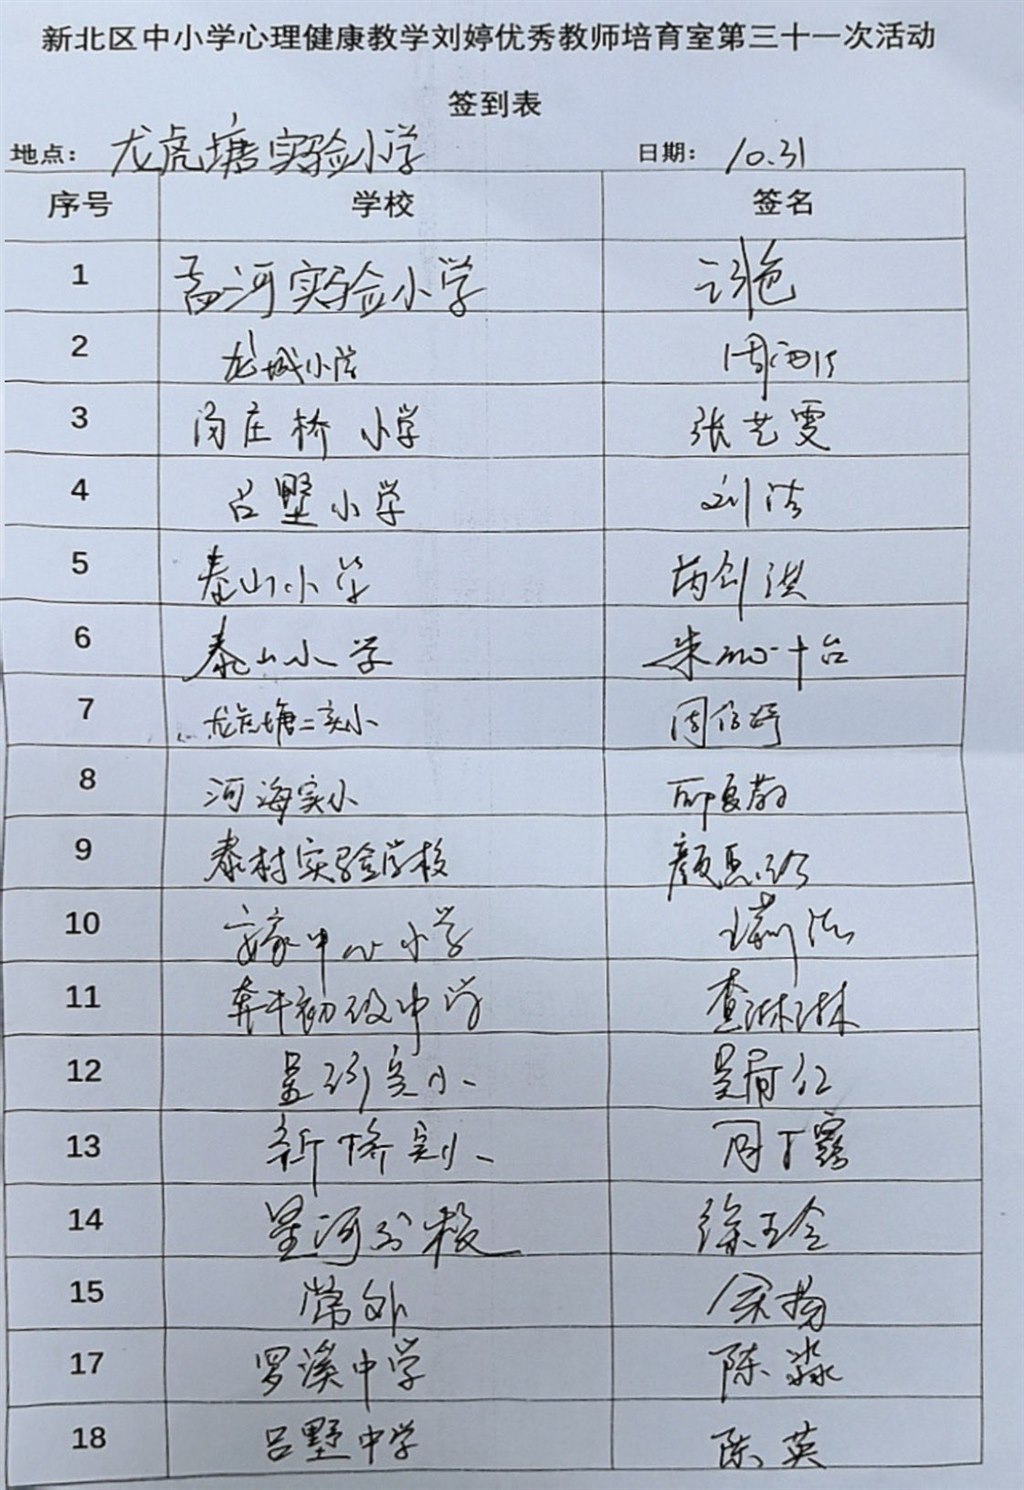 新北区中小学心理健康教学刘婷优秀教师培育室第三十一次活动
签到表
地点： 龙虎塘实验小学 日期： 10.31
序号 学校 签名
1 孟河实验小学
2 龙城小学
3 汤庄桥小学 张艺雯
4 吕墅小学 刘洁
5 泰山小学 芮剑洪
6 泰山小学 朱
7 龙虎塘二实小 周
8 河海实小
9 泰村实验学校 颜
10 安家中心小学
11 奔牛初级中学 查淋淋
12 星河实小
13 新桥实小 周丁露
14 星河分校 徐玉令
15 常外 余扬
17 罗溪中学 陈淼
18 吕墅中学 陈英